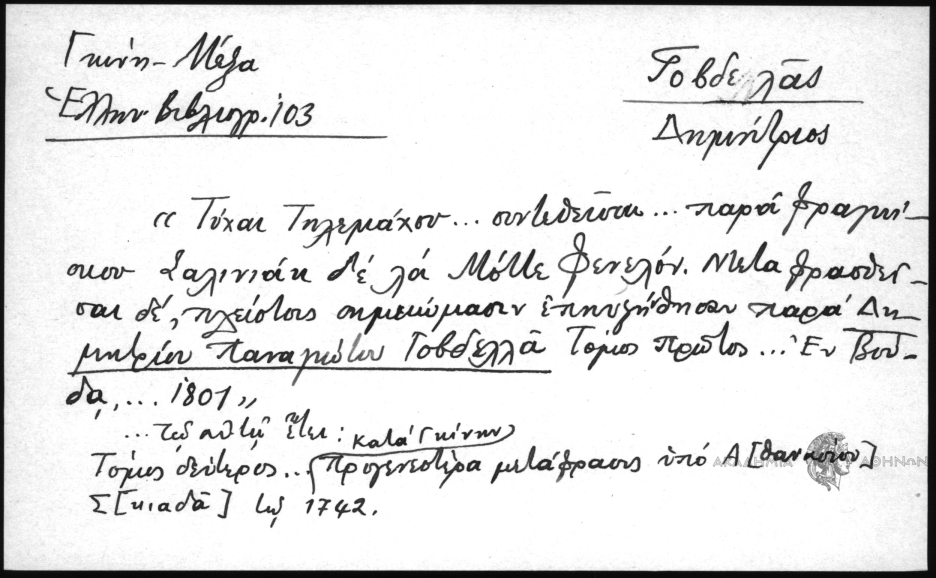 Γκίνη - Μέξα
Ἑλλην. Βιβλιογρ. 103
Γοβδελᾶς
Δημήτριος
«Τύχαι Τηλεμάχου... συντεθεῖσαι... παρά Φραγκί-
σκου Σαλινιάκ δέ λά Μόττε Φενελόν. Μεταφρασθεῖ-
σαι δέ, πλείστοις σημειώμασιν ἐπηυξήθησαν παρά Δη-
μητρίου Παναγιώτου Γοβδελλᾶ Τόμος Πρῶτος... Ἐν Βού-
δᾳ,... 1801»
... τῷ αὐτῷ ἔτει:
Τόμος δεύτερος... (κατά Γκίνην) Προγενεστέρα μετάφρασις ὑπό Α[θανασίου]
Σ[κιαδᾶ] τῷ 1742.
ΑΚΑΔΗΜΙΑ ΑΘΗΝΩΝ